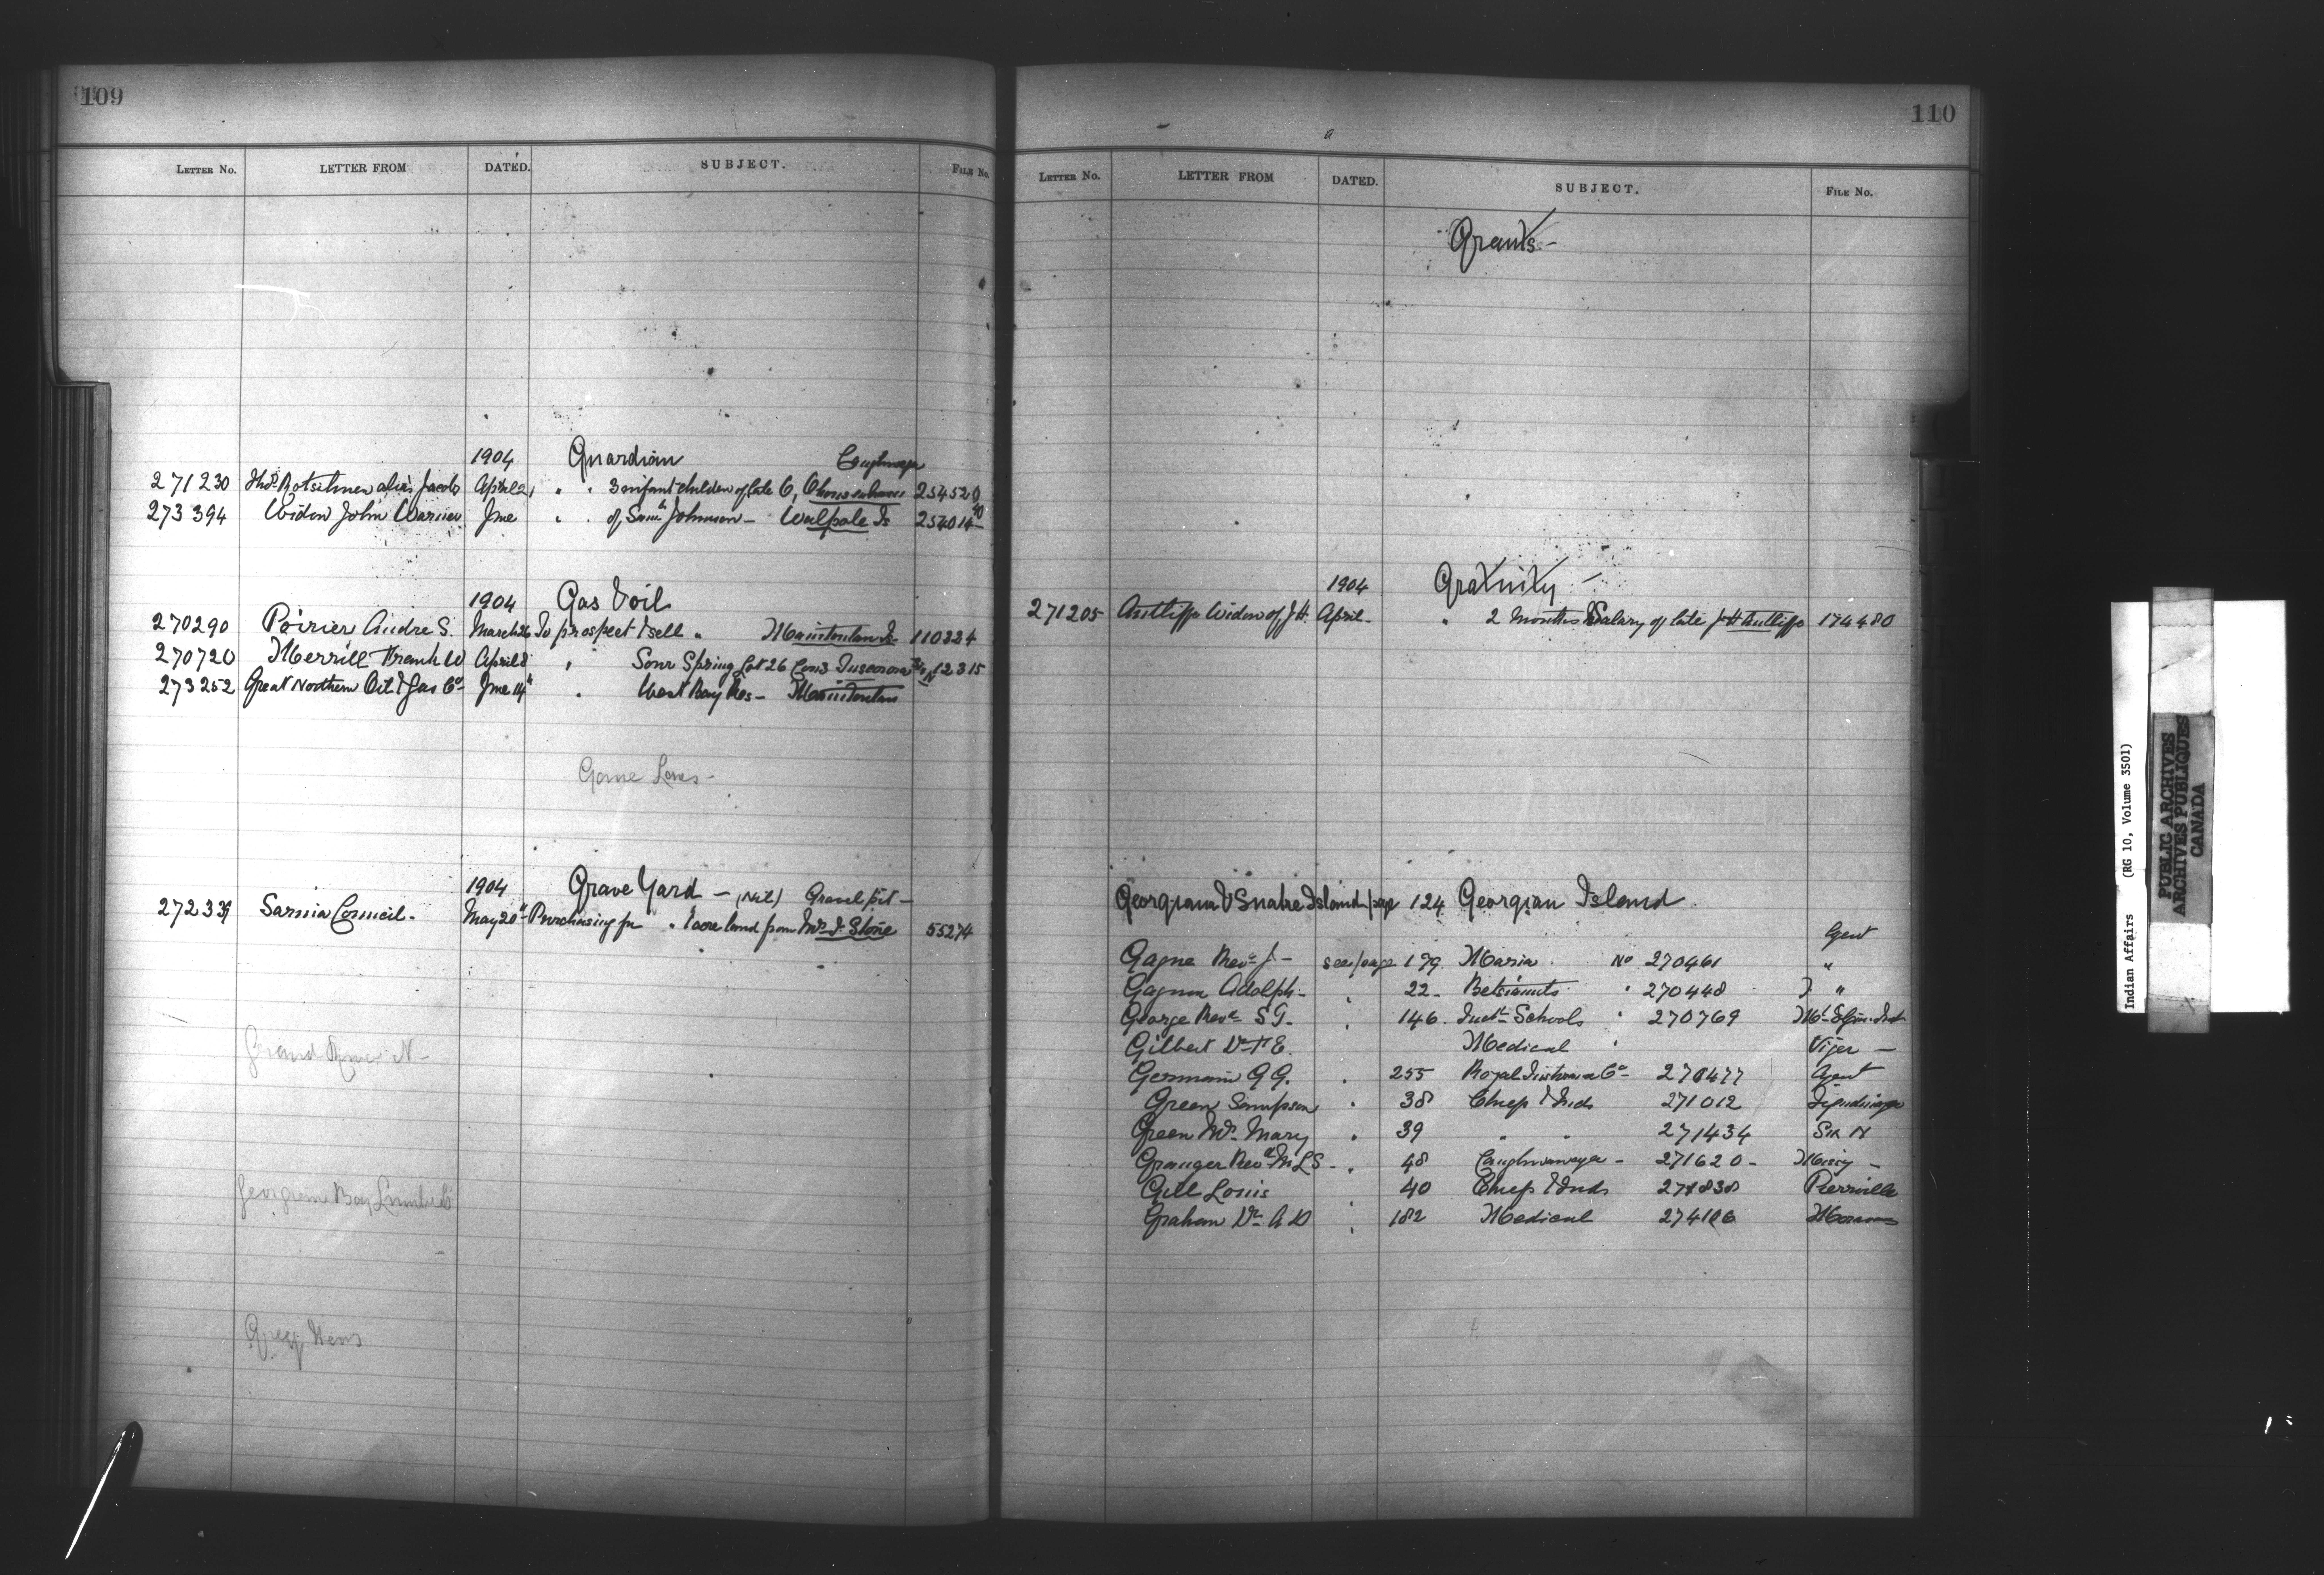 109
LETTER No. LETTER FROM DATED. SUBJECT. FILE No.
1904 Guardian
271230 alias Jacobs April 21 " " 3 infant children of late C, 254520
273394 Widow John Warner June " " of Saml Johnson - Walpole Is 254014
1904 Gas & oil
270290 Poirier Andre S. March 26 To prospect & sell " Manitoulin Is 110224
270720 Merrill Frank W April 8 " Sour Spring Lot 26 Con 3 Tuscarora 12315
273252 Great Northern Oil & Gas Co June 14" " West Bay Res - Manitoulin
Game Laws -
1904 Grave Yard - (Nil) Gravel pit -
272339 Sarnia Council - May 20" Purchasing for " 1 acre land from Stone 55274
Grand River N -
Georgian Bay Lumber Co
110
LETTER No. LETTER FROM DATED. SUBJECT. FILE No.
Grants -
1904 Gratuity -
271205 Antliff Widow of J.H. April " 2 months Salary of late J H Antliff 174480
Georgiana & Snake Island page 124 Georgian Island
Agent
Gagne Revd J - see page 179 Maria No 270461 "
Gagnon Adolph - " 22 - Betsiamits " 270448 "
George Revd S G - " 146. Schools " 270769 Mt Elgin Inst
Gilbert Dr Medical " Viger -
Germain G G. " 255 Royal Co 270477 Agent
Green Sampson " 38 Chief & Inds 271012 Tyendinaga
Green Mrs Mary " 39 " " 271434 Six N
Granger Revd M L S - " 48 Caughnawaga - 271620 - Missy -
Gill Louis " 40 Chief & Inds 271838 Pierreville
Graham Dr A D " 182 Medical 274106
Indian Affairs (RG 10, Volume 3501)
PUBLIC ARCHIVES
ARCHIVES PUBLIQUES
CANADA